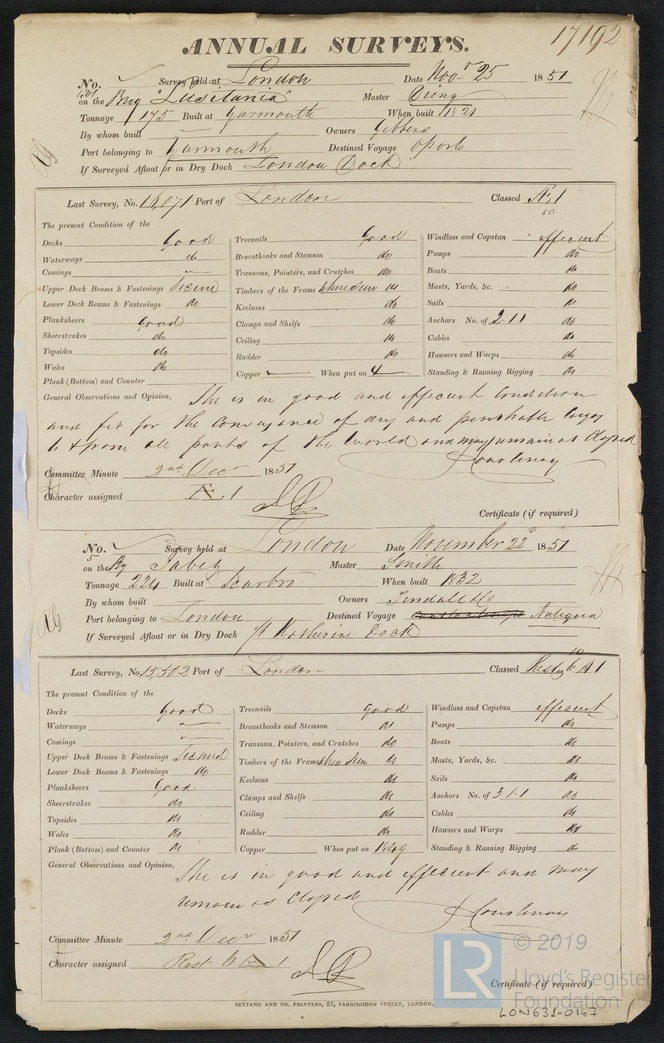 17192
ANNUAL SURVEYS.
No. Survey held at London Date Nov 25 1851
on the Brig "Lusitania" Master
Tonnage 175 Built at Yarmouth When built 1821
By whom built Owners Gibbens
Port belonging to Yarmouth Destined Voyage Oporto
If Surveyed Afloat or in Dry Dock London Dock
Last Survey, No. 15,071 Port of London Classed Æ 1
50
The present Condition of the
Decks Good Treenails Good Windlass and Capstan efficient
Waterways do Breasthooks and Stemson do Pumps do
Comings Transoms, Pointers, and Crutches do Boats do
Upper Deck Beams & Fastenings Secure Timbers of the Frame where seen do Masts, Yards, &c. do
Lower Deck Beams & Fastenings do Keelsons do Sails do
Planksheers Good Clamps and Shelfs do Anchors No. of 2.1.1 do
Sheerstrakes do Ceiling do Cables do
Topsides do Rudder do Hawsers and Warps do
Wales do Copper When put on 4 Standing & Running Rigging do
Plank (Bottom) and Counter
General Observations and Opinion, She is in good and efficient Condition
and fit for the Conveyance of dry and perishable Cargo
to & from all parts of the World and may remain as Classed
J Courtenay
Committee Minute 2nd Decr 1851
Character assigned Æ. 1
Certificate (if required)
No. Survey held at London Date November 22d 1851
5 on the Bg Tabey Master Smith
Tonnage 224 Built at Scarbro When built 1832
By whom built Owners Tindall & Co
Port belonging to London Destined Voyage Antigua
If Surveyed Afloat or in Dry Dock St Katherine Dock
Last Survey, No. 15,302 Port of London Classed Rest 6 A 1
The present Condition of the
Decks Good Treenails Good Windlass and Capstan efficient
Waterways Breasthooks and Stemson do Pumps do
Comings Transoms, Pointers, and Crutches do Boats do
Upper Deck Beams & Fastenings Secured Timbers of the Frame where seen do Masts, Yards, &c. do
Lower Deck Beams & Fastenings do Keelsons do Sails do
Planksheers Good Clamps and Shelfs do Anchors No. of 3.1.1 do
Sheerstrakes do Ceiling do Cables do
Topsides do Rudder do Hawsers and Warps do
Wales do Copper When put on 1849 Standing & Running Rigging do
Plank (Bottom) and Counter do
General Observations and Opinion, She is in good and efficient and may
remain as Classed
J Courtenay
Committee Minute 2nd Decr 1851
Character assigned Rest 6 A 1
Certificate (if required)
SEYFANG AND CO. PRINTERS, 57, FARRINGDON STREET, LONDON.
LR © 2019
Lloyd's Register
Foundation
LON631-0147